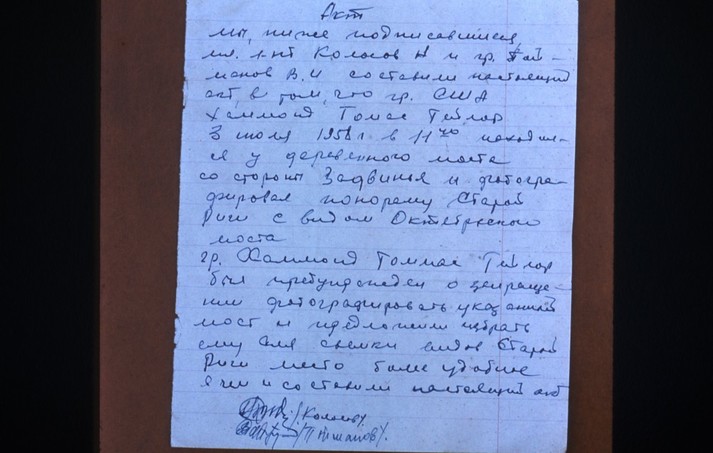 Акт
мы, ниже подписавшиеся
мл. л-нт Колосов Н и гр. Пай-
манов В.И составили настоящий
акт, в том, что гр. США
Хаммонд Томас Тейлор
3 июля 1958 г. в 11 40 находил-
ся у деревенного моста
со стороны Задвинья и фотогра-
фировал понораму Старой
Риги с видом Октябрьского
моста
гр. Хаммонд Томмас Тейлор
был предупрежден о запреще-
нии фотографировать указанный
мост и предложили избрать
ему для съемки видов Старой
Риги место более удобное
о чем и составили настоящий акт
/Колосов/.